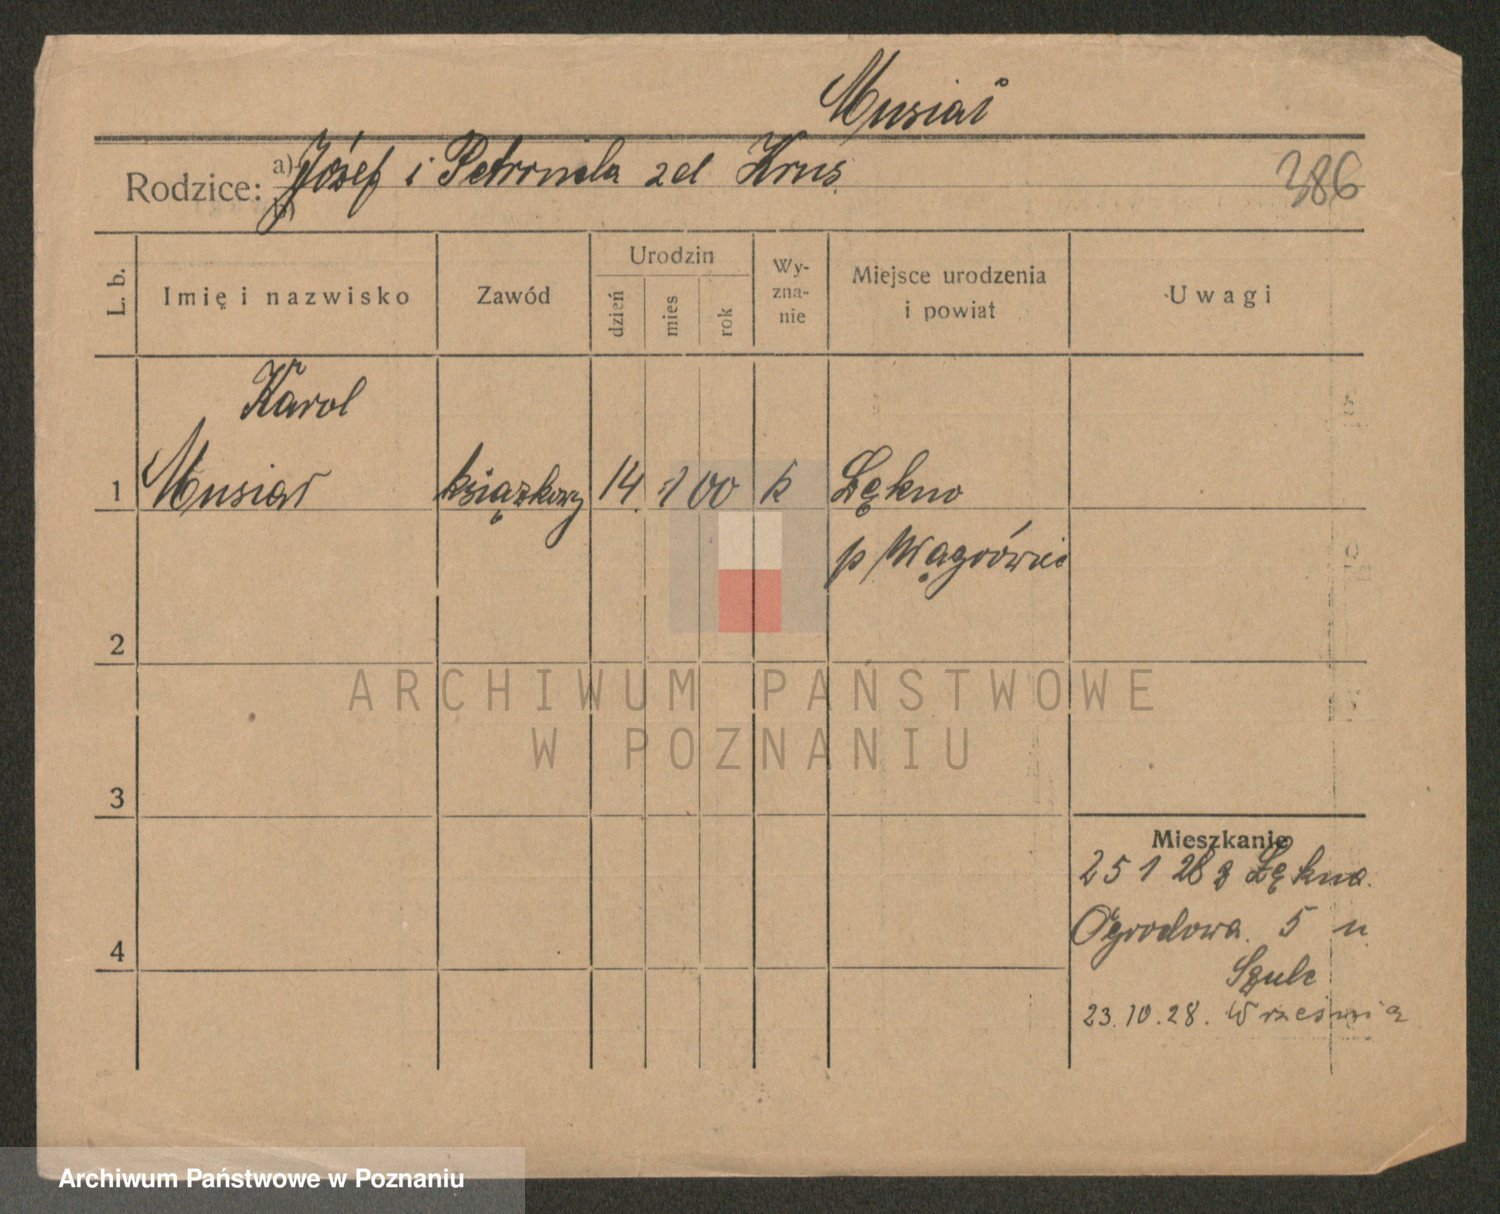 Musiał
Rodzice: a) Józef i Petronela zd Kruś
b)
386
L. b.
Imię i nazwisko
Zawód
Urodzin
dzień
mies
rok
Wy-
zna-
nie
Miejsce urodzenia
i powiat
Uwagi
Karol
1 Musiał książkowy 14. 1 00 k Łękno
p Wągrówiec
2
3
4
Mieszkanie
25 1 28 z Łękna.
Ogrodowa. 5 u
Szulc
23.10.28. Września
ARCHIWUM PAŃSTWOWE
W POZNANIU
Archiwum Państwowe w Poznaniu